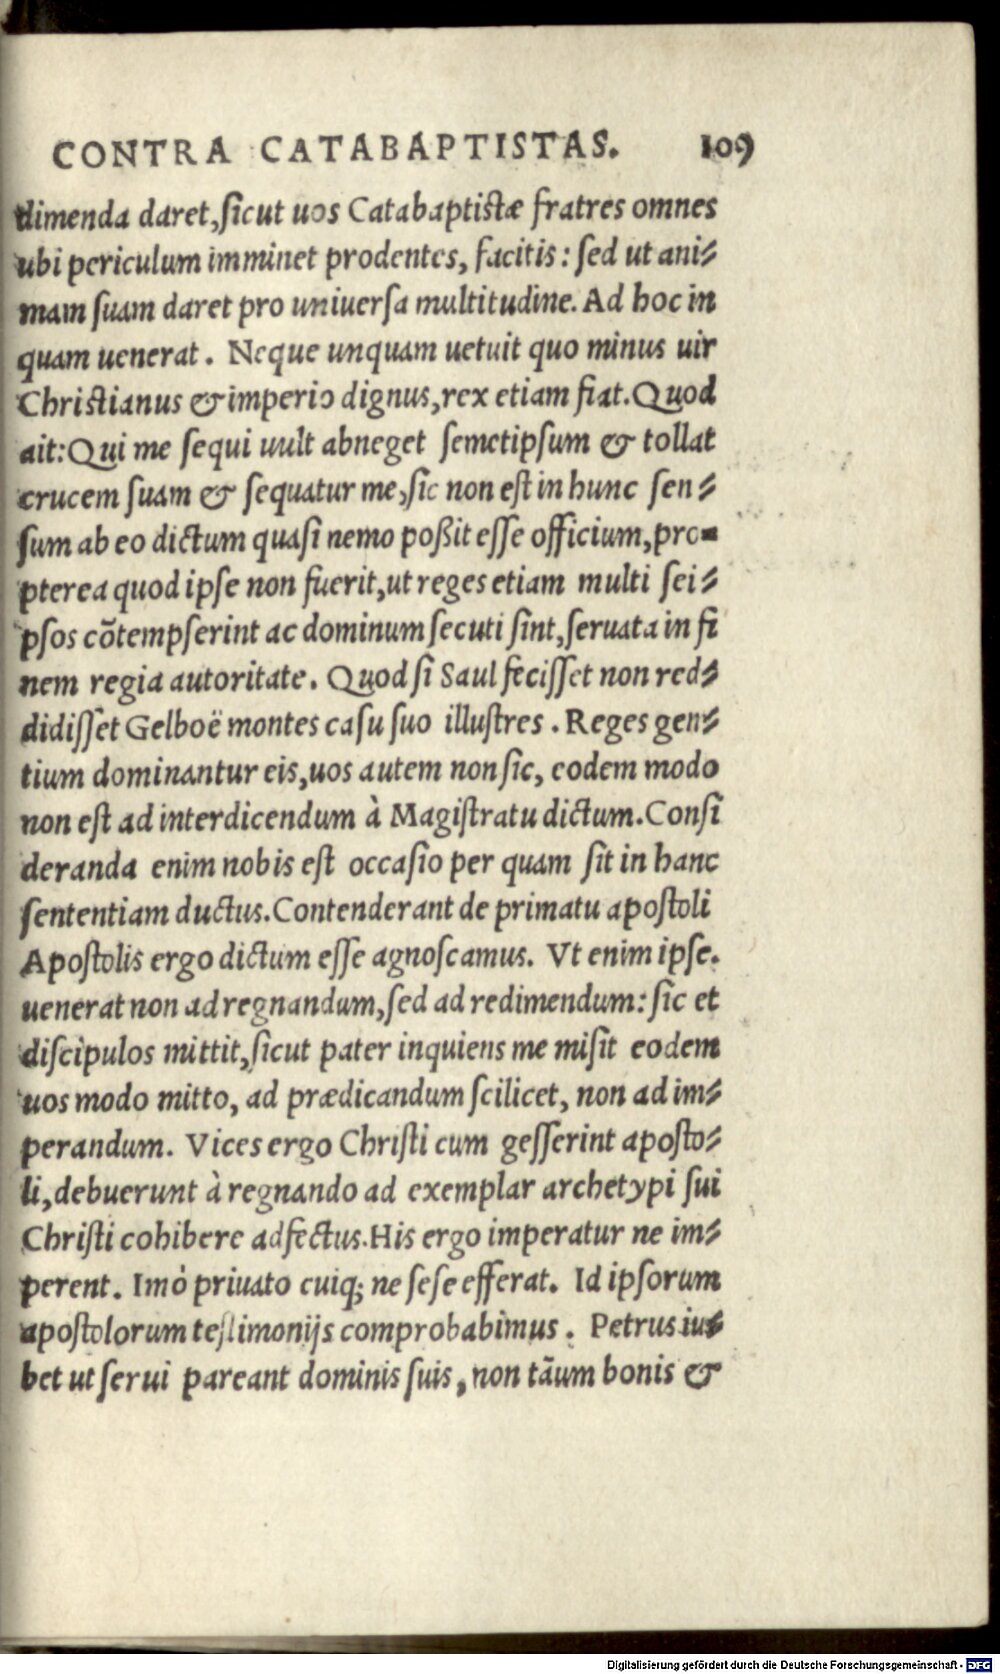 CONTRA CATABAPTISTAS. 109
dimenda daret,ſicut uos Catabaptistæ fratres omnes
ubi periculum imminet prodentes, facitis: ſed ut ani⸗
mam ſuam daret pro uniuerſa multitudine. Ad hoc in
quam uenerat. Neque unquam uetuit quo minus uir
Christianus & imperio dignus,rex etiam fiat. Quod
ait: Qui me ſequi uult abneget ſemetipſum & tollat
crucem ſuam & ſequatur me,ſic non eſt in hunc ſen⸗
ſum ab eo dictum quaſi nemo poßit eſſe officium,pro⸗
pterea quod ipſe non fuerit,ut reges etiam multi ſei⸗
pſos cõtempſerint ac dominum ſecuti ſint,ſeruata in fi
nem regia autoritate. Quod ſi Saul feciſſet non red⸗
didiſſet Gelboë montes caſu ſuo illuſtres. Reges gen⸗
tium dominantur eis,uos autem non ſic, eodem modo
non eſt ad interdicendum à Magiſtratu dictum. Conſi
deranda enim nobis eſt occaſio per quam ſit in hanc
ſententiam ductus. Contenderant de primatu apoſtoli
Apoſtolis ergo dictum eſſe agnoſcamus. Vt enim ipſe.
uenerat non ad regnandum,ſed ad redimendum: ſic et
diſcipulos mittit,ſicut pater inquiens me miſit eodem
uos modo mitto, ad prædicandum ſcilicet, non ad im⸗
perandum. Vices ergo Chriſti cum geſſerint apoſto⸗
li,debuerunt à regnando ad exemplar archetypi ſui
Chriſti cohibere adfectus. His ergo imperatur ne im⸗
perent. Imò priuato cuiq; ne ſeſe efferat. Id ipſorum
apoſtolorum teſtimonijs comprobabimus. Petrus iu⸗
bet ut ſerui pareant dominis ſuis, non tãum bonis &
Digitalisierung gefördert durch die Deutsche Forschungsgemeinschaft - DFG